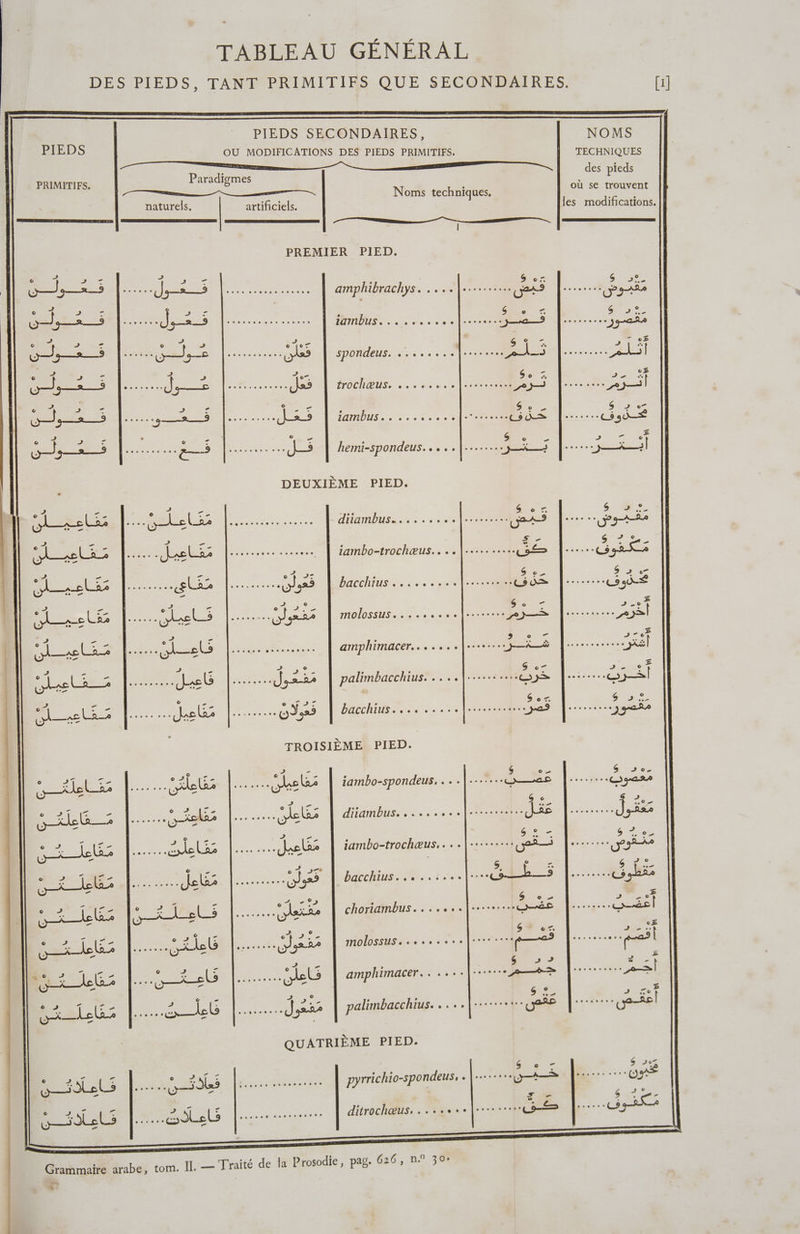 TABLEAU GÉNÉRAL
DES PIEDS, TANT PRIMITIFS QUE SECONDAIRES. [1]
PIEDS PRIMITIFS.
PIEDS SECONDAIRES,
OU MODIFICATIONS DES PIEDS PRIMITIFS.
Paradigmes
naturels. artificiels.
Noms techniques.
NOMS
TECHNIQUES
des pieds
où se trouvent
les modifications.
PREMIER PIED.
فَعُولُنْ فَعُولُ amphibrachys. قَبْضٌ مَقْبُوضٌ
فَعُولُنْ فَعُولْ iambus. قَصْرٌ مَقْصُورٌ
فَعُولُنْ عُولُنْ فَعْلُنْ spondeus. ثَلْمٌ أَثْلَمُ
فَعُولُنْ عُولُ فَعْلُ trochæus. ثَرْمٌ أَثْرَمُ
فَعُولُنْ فَعُو فَعَلْ iambus. حَذْفٌ مَحْذُوفٌ
فَعُولُنْ فَعْ فَلْ hemi-spondeus. بَتْرٌ أَبْتَرُ
DEUXIÈME PIED.
مَفَاعِيلُنْ مَفَاعِلُنْ diiambus. قَبْضٌ مَقْبُوضٌ
مَفَاعِيلُنْ مَفَاعِيلُ iambo-trochæus. كَفٌّ مَكْفُوفٌ
مَفَاعِيلُنْ مَفَاعِى فَعُولُنْ bacchius حَذْفٌ مَحْذُوفٌ
مَفَاعِيلُنْ فَاعِيلُنْ مَفْعُولُنْ molossus خَرْمٌ أَخْرَمُ
مَفَاعِيلُنْ فَاعِلُنْ amphimacer. شَتْرٌ أَشْتَرُ
مَفَاعِيلُنْ فَاعِيلُ مَفْعُولُ palimbacchius. خَرْبٌ أَخْرَبُ
مَفَاعِيلُنْ مَفَاعِيلْ فَعُولَانْ bacchius قَصْرٌ مَقْصُورٌ
TROISIÈME PIED.
مَفَاعِلَتُنْ مَفَاعِلْتُنْ مَفَاعِيلُنْ iambo-spondeus. عَصْبٌ مَعْصُوبٌ
مَفَاعِلَتُنْ مَفَاعِتُنْ مَفَاعِلُنْ diiambus. عَقْلٌ مَعْقُولٌ
مَفَاعِلَتُنْ مَفَاعِلْتُ مَفَاعِيلُ iambo-trochæus. نَقْصٌ مَنْقُوصٌ
مَفَاعِلَتُنْ مَفَاعِلْ فَعُولُنْ bacchius قَطْفٌ مَقْطُوفٌ
مَفَاعِلَتُنْ فَاعِلَتُنْ مُفْتَعِلُنْ choriambus. عَضْبٌ أَعْضَبُ
مَفَاعِلَتُنْ فَاعِلْتُنْ مَفْعُولُنْ molossus قَصْمٌ أَقْصَمُ
مَفَاعِلَتُنْ فَاعِتُنْ فَاعِلُنْ amphimacer. جَمَمٌ أَجَمُّ
مَفَاعِلَتُنْ فَاعِلْتُ مَفْعُولُ palimbacchius. عَقْصٌ أَعْقَصُ
QUATRIÈME PIED.
فَاعِلَاتُنْ فَعِلَاتُنْ pyrrichio-spondeus. خَبْنٌ مَخْبُونٌ
فَاعِلَاتُنْ فَاعِلَاتُ ditrochæus. كَفٌّ مَكْفُوفٌ
Grammaire arabe, tom. II. — Traité de la Prosodie, pag. 626, n.º 30.